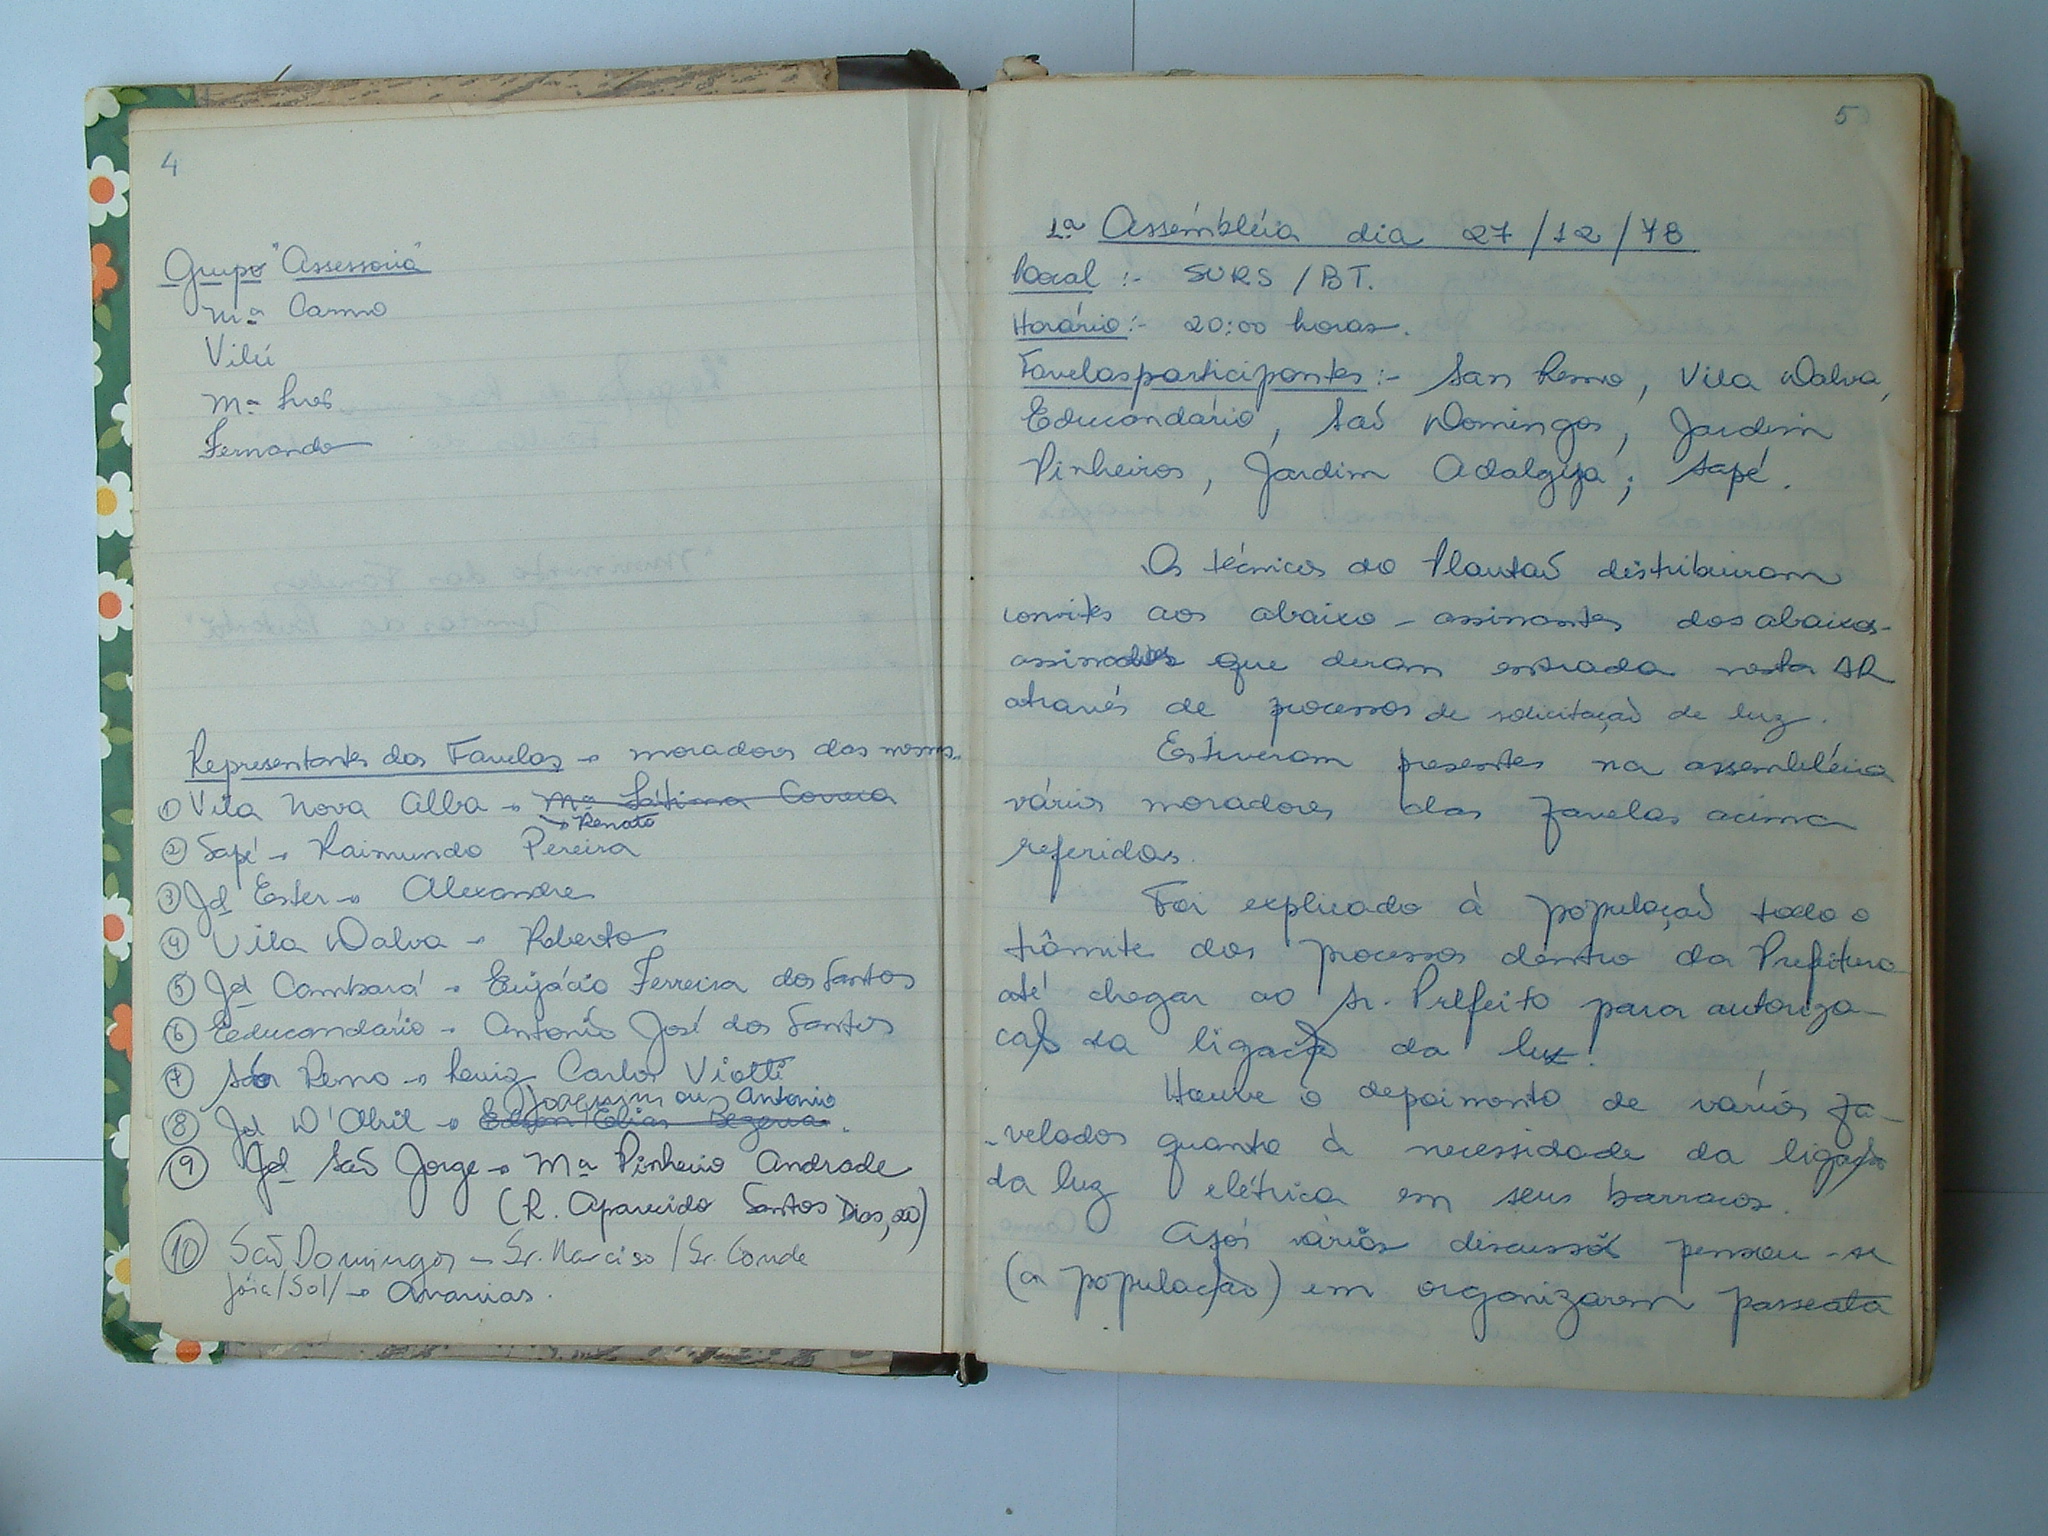 4
Grupo "Assessoria"
Mª Carmo
Vilú
Mª Ines
Fernando
Representantes das Favelas → moradores das mesmas.
① Vila Nova Alba → Mª Fátima Correia
→ Renato
② Sapé → Raimundo Pereira
③ Jd Ester → Alexandre
④ Vila Dalva → Roberto
⑤ Jd Cambará → Ferreira dos Santos
⑥ Educandário → Antonio José dos Santos
⑦ São Remo → Luiz Carlos Viotti
Joaquim ou Antonio
⑧ Jd D'Abril → Edson Elias Bezerra.
⑨ Jd São Jorge → Mª Pinheiro Andrade
(R. Aparecido Santos Dias, 20)
⑩ São Domingos – Sr. Narciso / Sr. Conde
/Sol/ → Ananias.
5
1ª Assémbléia dia 27/12/78
Local :- SURS / BT.
Horário:- 20:00 horas.
Favelas participantes:- San Remo, Vila Dalva,
Educandário, São Domingos, Jardim
Pinheiros, Jardim Adalgisa; Sapé.
Os técnicos do Plantão distribuiram
convites aos abaixo-assinantes dos abaixos-
assinados que deram entrada nesta AR
através de processos de solicitação de luz.
Estiveram presentes na assembléia
vários moradores das favelas acima
referidas.
Foi explicado à população todo o
trâmite dos processos dentro da Prefeitura
até chegar ao Sr. Prefeito para autoriza-
ção da ligação da luz.
Houve o depoimento de vários fa-
-velados quanto à necessidade da ligação
da luz elétrica em seus barracos.
Após vários discussões pensou-se
(a população) em organizarem passeata